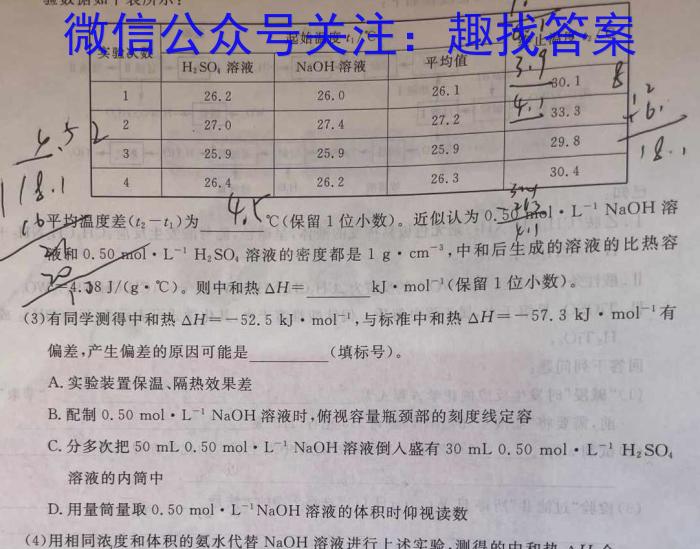 验数据如下表所示:
微信公众号关注：趣找答案
实验次数 起始温度t₁/℃ 止温度
H₂SO₄溶液 NaOH溶液 平均值
1 26.2 26.0 26.1 30.1
2 27.0 27.4 27.2 33.3
3 25.9 25.9 25.9 29.8
4 26.4 26.2 26.3 30.4
平均温度差(t₂-t₁)为 4.5 ℃(保留1位小数)。近似认为0.50 mol·L⁻¹ NaOH溶
液和0.50 mol·L⁻¹ H₂SO₄溶液的密度都是1 g·cm⁻³,中和后生成的溶液的比热容
=4.18 J/(g·℃)。则中和热ΔH=______kJ·mol⁻¹(保留1位小数)。
(3)有同学测得中和热ΔH=-52.5 kJ·mol⁻¹,与标准中和热ΔH=-57.3 kJ·mol⁻¹有
偏差,产生偏差的原因可能是______(填标号)。
A.实验装置保温、隔热效果差
B.配制0.50 mol·L⁻¹ NaOH溶液时,俯视容量瓶颈部的刻度线定容
C.分多次把50 mL 0.50 mol·L⁻¹ NaOH溶液倒入盛有30 mL 0.50 mol·L⁻¹ H₂SO₄
溶液的内筒中
D.用量筒量取0.50 mol·L⁻¹NaOH溶液的体积时仰视读数
(4)用相同浓度和体积的氨水代替NaOH溶液进行上述实验,测得的中和热ΔH会